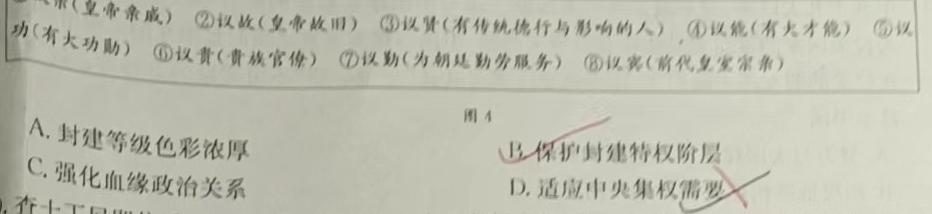 亲(皇帝亲戚) ②议故(皇帝故旧) ③议贤(有传统德行与影响的人) ④议能(有大才能) ⑤议
功(有大功勋) ⑥议贵(贵族官僚) ⑦议勤(为朝廷勤劳服务) ⑧议宾(前代皇室宗亲)
图 4
A. 封建等级色彩浓厚
B. 保护封建特权阶层
C. 强化血缘政治关系
D. 适应中央集权需要